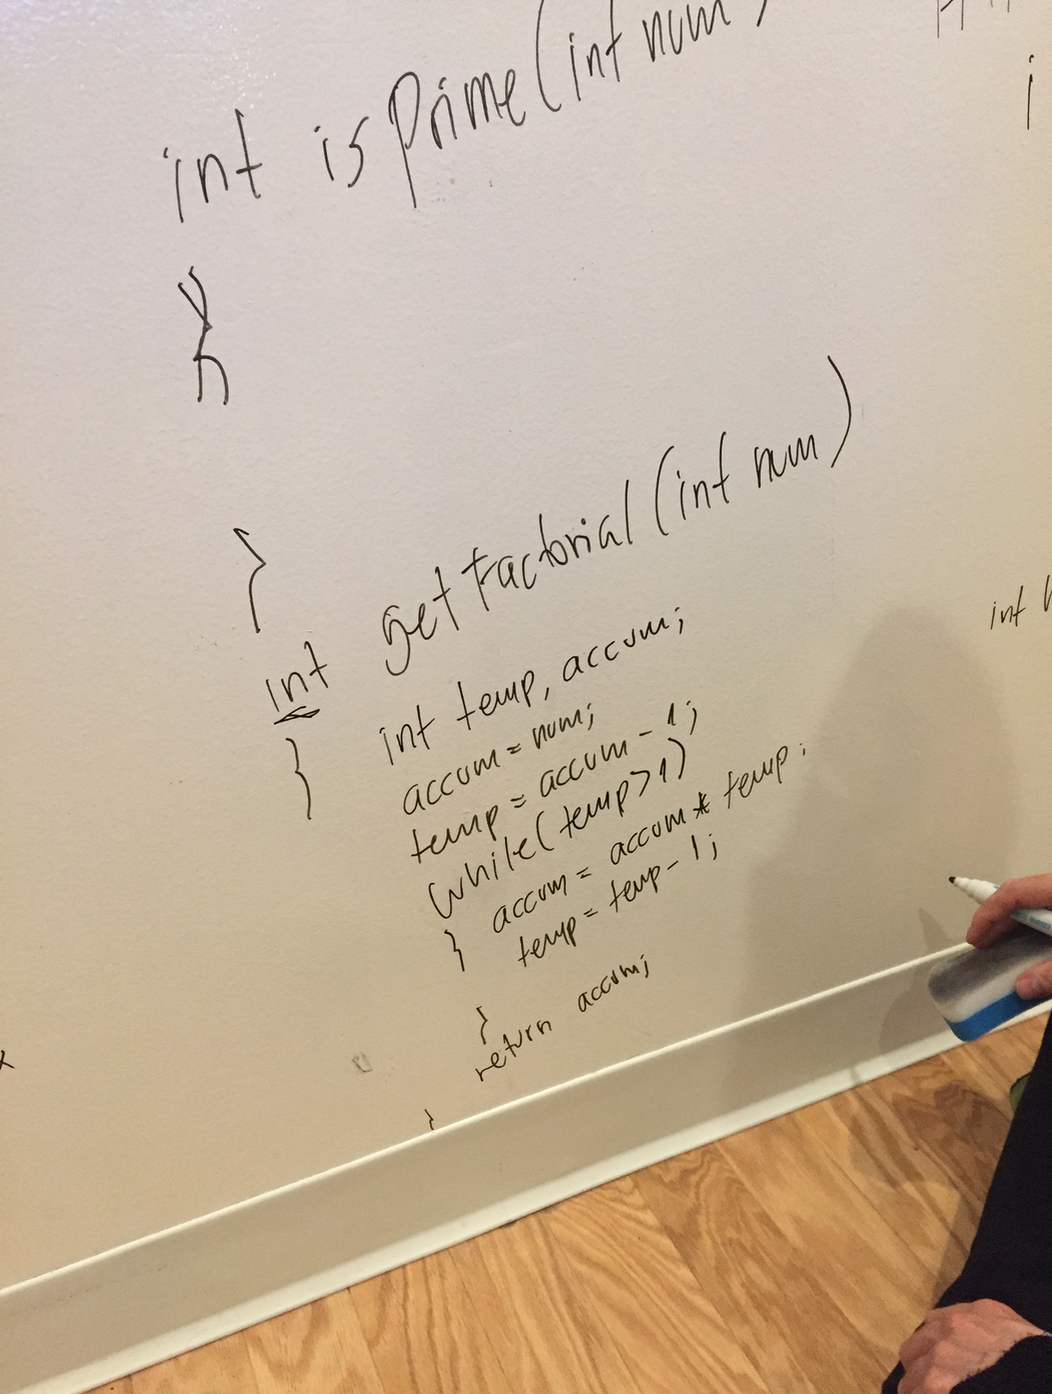 int isPrime(int num)
{
}
int getFactorial(int num)
{ int temp, accum;
accum = num;
temp = accum - 1;
while(temp>1)
{ accum = accum * temp;
temp = temp - 1;
}
return accum;
}
int